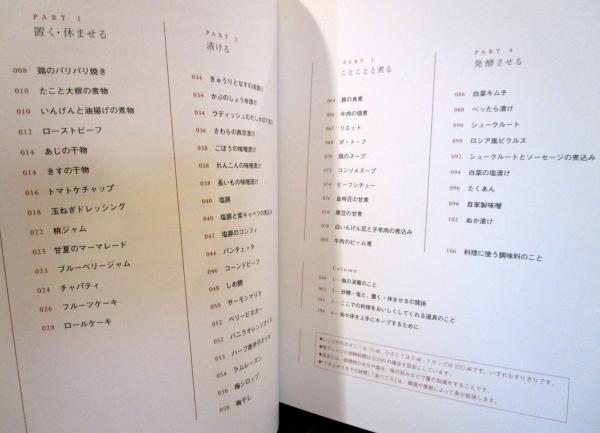 PART 1
置く・休ませる
008 鶏のパリパリ焼き
010 たこと大根の煮物
010 いんげんと油揚げの煮物
012 ローストビーフ
014 あじの干物
014 きすの干物
016 トマトケチャップ
018 玉ねぎドレッシング
022 桃ジャム
023 甘夏のマーマレード
023 ブルーベリージャム
024 チャパティ
026 フルーツケーキ
028 ロールケーキ
PART 2
漬ける
034 きゅうりとなすの
034 かぶのしょうゆ漬け
034 ラディッシュのだしかけ
036 さわらの西京漬け
038 ごぼうの味噌漬け
038 れんこんの味噌漬け
038 長いもの味噌漬け
040 塩豚
040 塩豚と紫キャベツの煮込み
042 塩豚のコンフィ
044 パンチェッタ
046 コーンドビーフ
048 しめ鯖
050 サーモンマリネ
052 ベリービネガー
052 バニラオレンジオイル
053 ハーブ唐辛子オイル
054 ラムレーズン
056 梅シロップ
058 梅干し
PART 3
ことことと煮る
064 豚の角煮
066 牛肉の佃煮
067 リエット
068 ポ・ト・フ
070 鶏のスープ
072 コンソメスープ
074 ビーフシチュー
076 金時豆の甘煮
076 黒豆の甘煮
078 白いんげん豆と子羊肉の煮込み
080 牛肉のビール煮
Column
030 1…瓶の消毒のこと
061 2…砂糖・塩と、置く・休ませるの関係
082 3…ここでの料理をおいしくしてくれる道具のこと
104 4…ぬか床を上手にキープするために
PART 4
発酵させる
086 白菜キムチ
088 べったら漬け
090 シュークルート
090 ロシア風ピクルス
092 シュークルートとソーセージの煮込み
094 白菜の塩漬け
096 たくあん
098 自家製味噌
102 ぬか漬け
106 料理に使う調味料のこと
●レシピ中の大さじ1は15㎖、小さじ1は5㎖、1カップは200㎖です。いずれもすりきりです。
●電子レンジの加熱時間は500Wの場合を目安にしています。